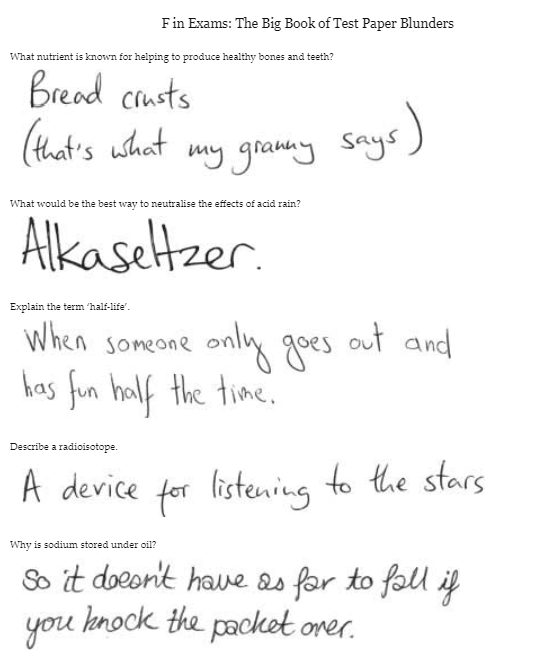 F in Exams: The Big Book of Test Paper Blunders
What nutrient is known for helping to produce healthy bones and teeth?
Bread crusts
(that's what my granny says)
What would be the best way to neutralise the effects of acid rain?
Alkaseltzer.
Explain the term 'half-life'.
When someone only goes out and
has fun half the time.
Describe a radioisotope.
A device for listening to the stars
Why is sodium stored under oil?
So it doesn't have as far to fall if
you knock the packet over.